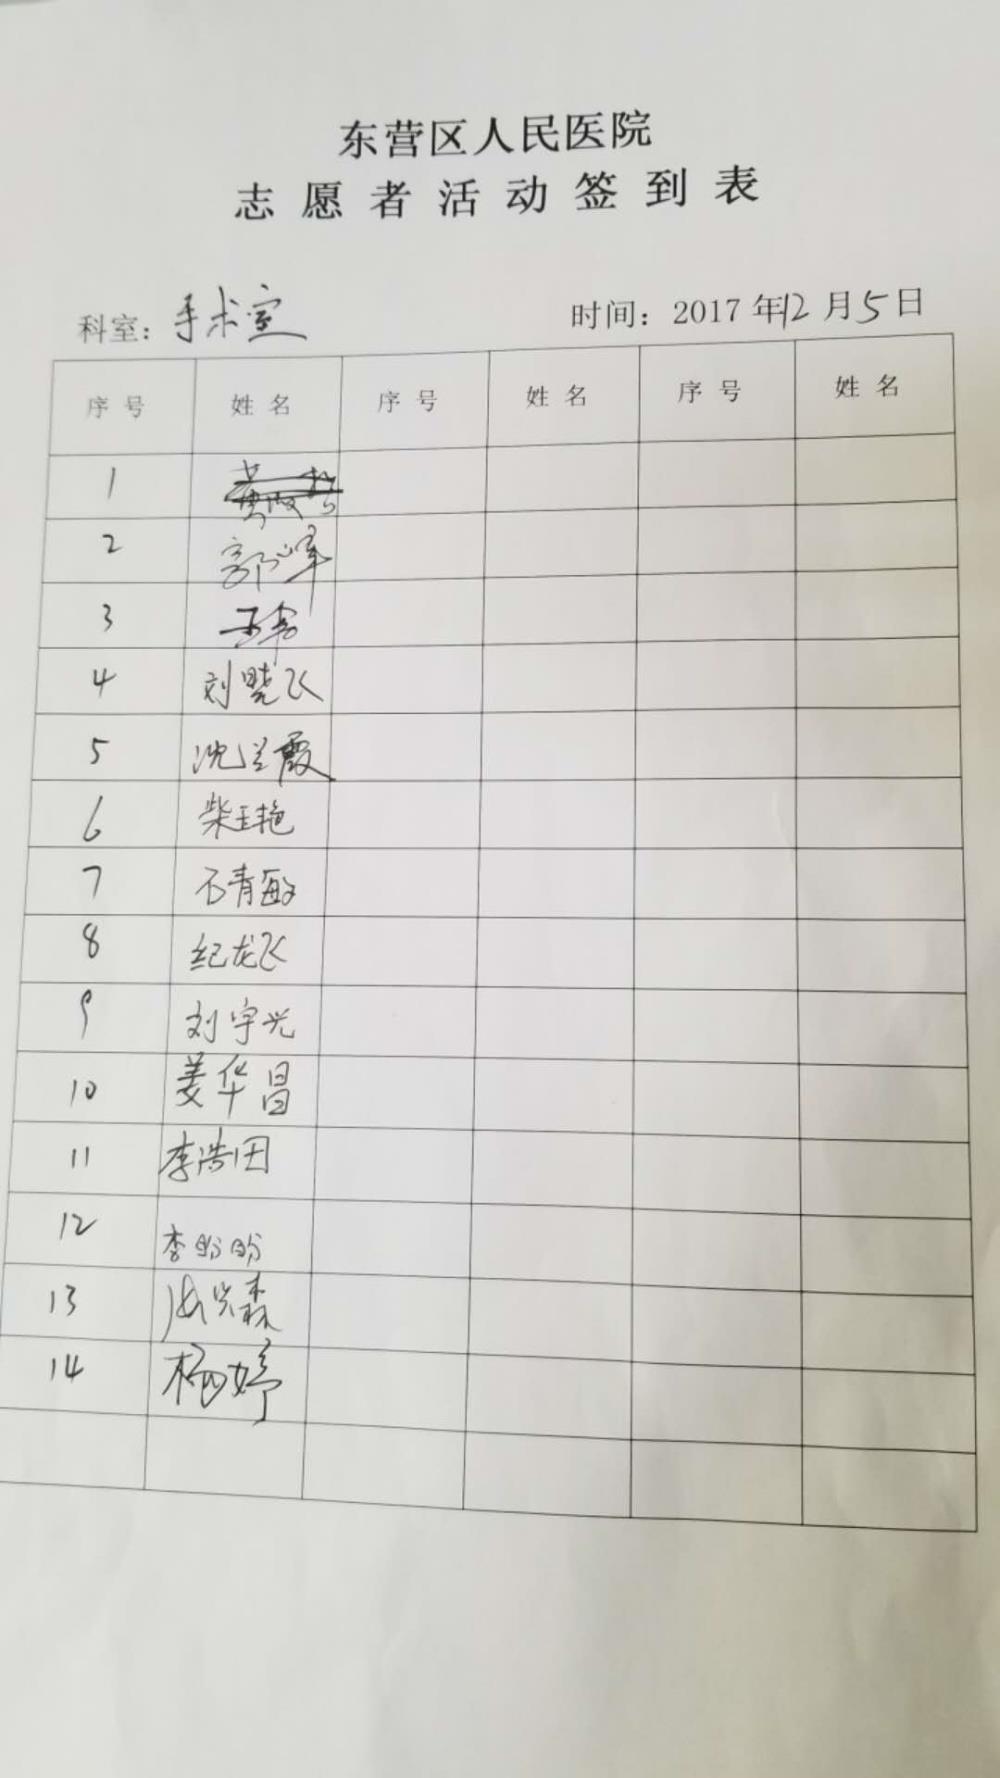 东营区人民医院
志愿者活动签到表
科室：手术室 时间：2017年12月5日
序号 姓名 序号 姓名 序号 姓名
1
2
3
4 刘晓飞
5 沈兰霞
6 柴玉艳
7 石青敏
8 纪龙飞
9 刘宇光
10 姜华昌
11 李浩田
12 李盼盼
13
14 杨婷